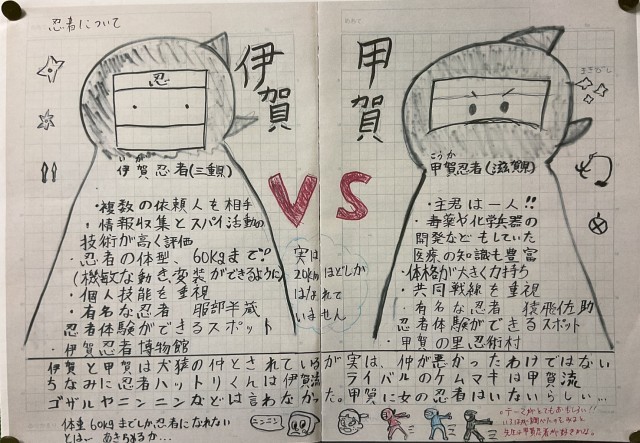 忍者について
忍
伊賀
いが
伊賀忍者(三重県)
・複数の依頼人も相手
・情報収集とスパイ活動の
技術が高く評価
・忍者の体型、60kgまで!?
(機敏な動き、変装ができるように)
・個人技能を重視
・有名な忍者 服部半蔵
忍者体験ができるスポット
・伊賀忍者博物館
VS
実は
20kmほどしか
はなれて
いません
甲賀
まきびし
こうか
甲賀忍者(滋賀県)
・主君は一人!!
・毒薬や化学兵器の
開発などもしていた
医療の知識も豊富
・体格が大きく力持ち
・共同戦線を重視
・有名な忍者 猿飛佐助
忍者体験ができるスポット
・甲賀の里忍術村
伊賀と甲賀は犬猿の仲とされているが実は、仲が悪かったわけではない
ちなみに忍者ハットリくんは伊賀流 ライバルのケムマキは甲賀流
ゴザルやニンニンなどは言わなかった。甲賀に女の忍者はいないらしい…
体重60kgまでしか忍者になれない
とは… あきらめるか…
ニンニン